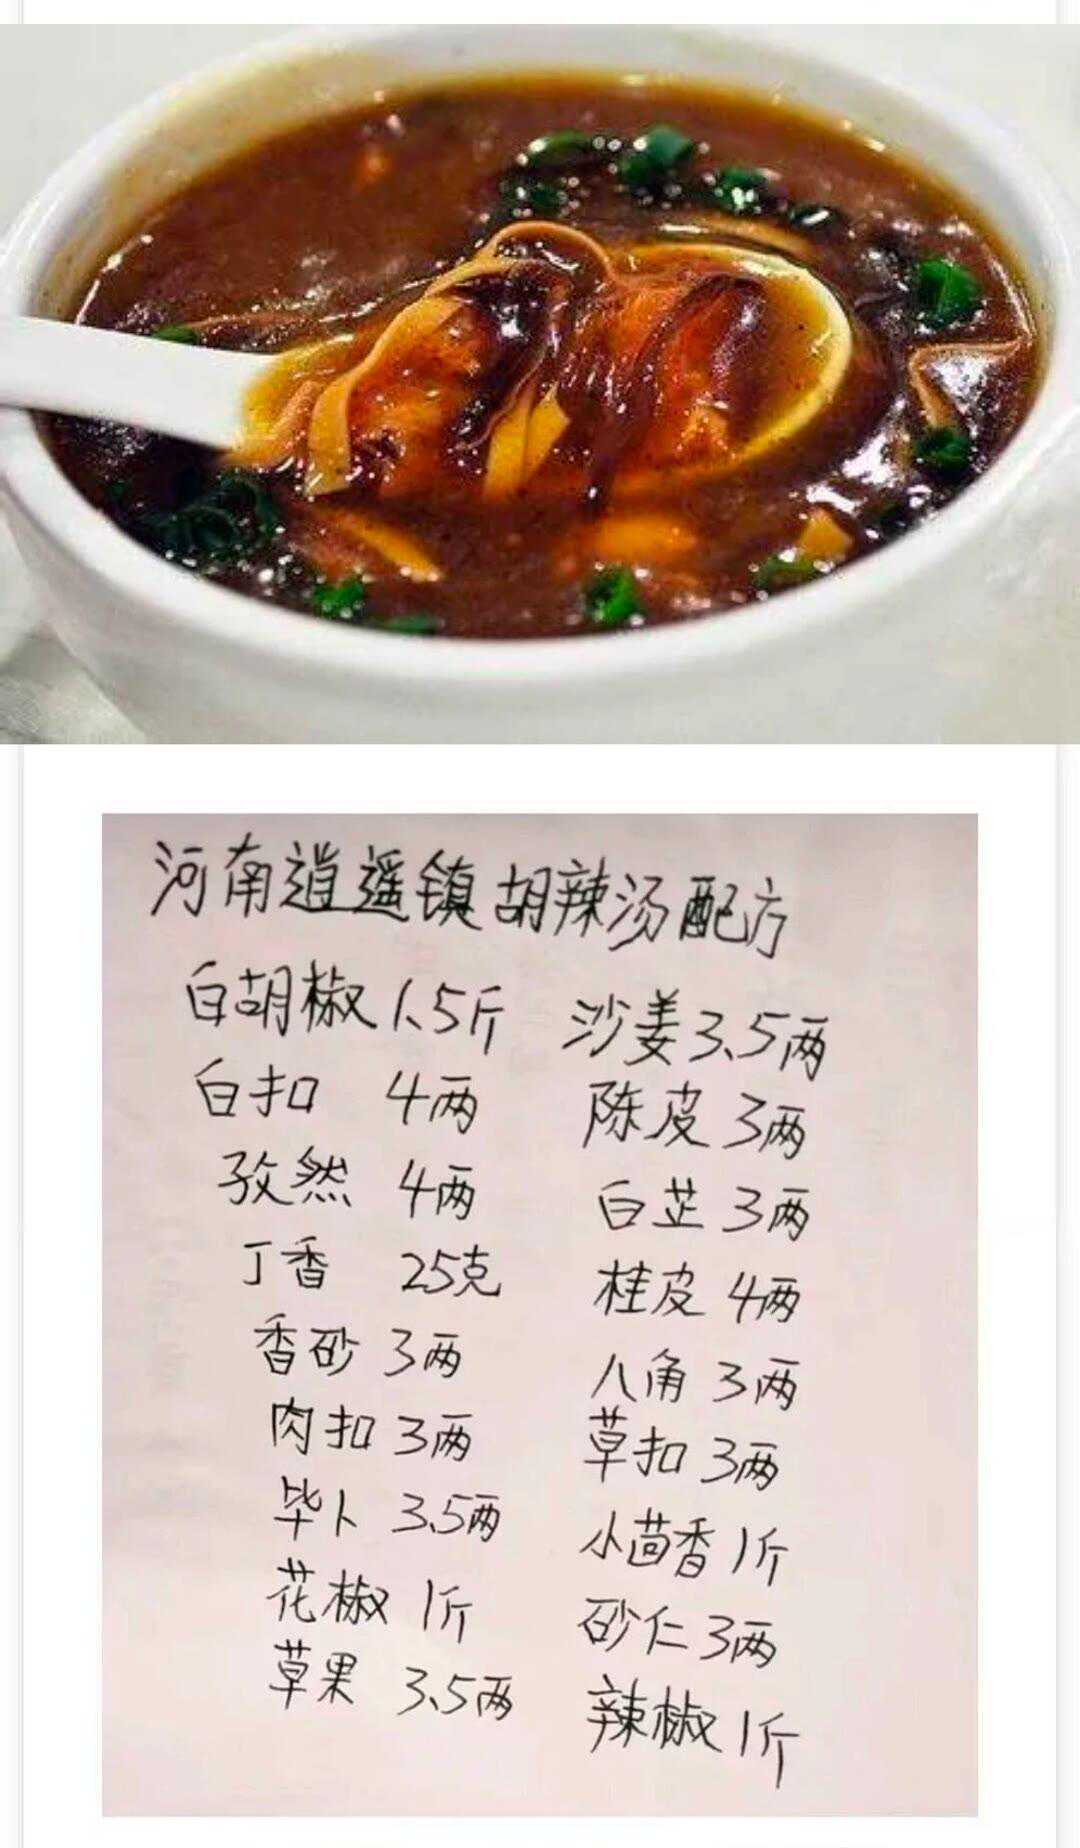 河南逍遥镇胡辣汤配方
白胡椒 1.5斤
白扣 4两
孜然 4两
丁香 25克
香砂 3两
肉扣 3两
毕卜 3.5两
花椒 1斤
草果 3.5两
沙姜 3.5两
陈皮 3两
白芷 3两
桂皮 4两
八角 3两
草扣 3两
小茴香 1斤
砂仁 3两
辣椒 1斤